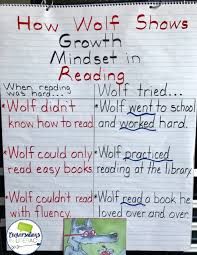 How Wolf Shows
Growth
Mindset in
Reading
When reading
was hard...
Wolf tried...
Wolf didn't
know how to read
Wolf went to school
and worked hard.
Wolf could only
read easy books.
Wolf practiced
reading at the library.
Wolf couldn't read
with fluency.
Wolf read a book he
loved over and over.